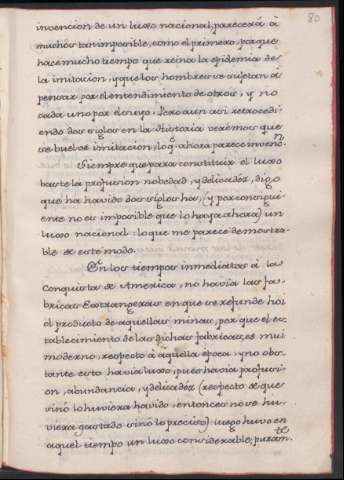 80
invencion de un luxo nacional, parecerá á
muchos tan imposible, como el primero, porque
hace mucho tiempo que reina la epidemia de
la imitacion, y que los hombres se sujetan á
pensar por el entendimiento de otros, y no
cada uno por el suyo. Pero aun asi retrocedi-
endo dos siglos en la Historia veremos que
se buelve imitacion, lo q.e ahora parece invenc.n
Siempre que para constituir el luxo
baste la profusion nobedad, y delicadéz, digo
que ha havido dos siglos ha, (y por consigui-
ente no es imposible que lo haya ahora) un
luxo nacional: lo que me parece demostra-
ble de este modo.
En los tiempos inmediatos á la
Conquista de America, no havia las fa-
bricas Extrangeras en que se refunde hoi
el producto de aquellas minas, por que el es-
tablecimiento de las dichas fabricas, es mui
moderno, respecto á aquella epoca, y no obs-
tante esto havia luxo, pues havia profusi-
on, abundancia, y delicadéz (respecto de que
sino lo huviera havido, entonces no se hu-
viera gastado sino lo preciso) luego huvo en
aquel tiempo un luxo considerable, puram.te